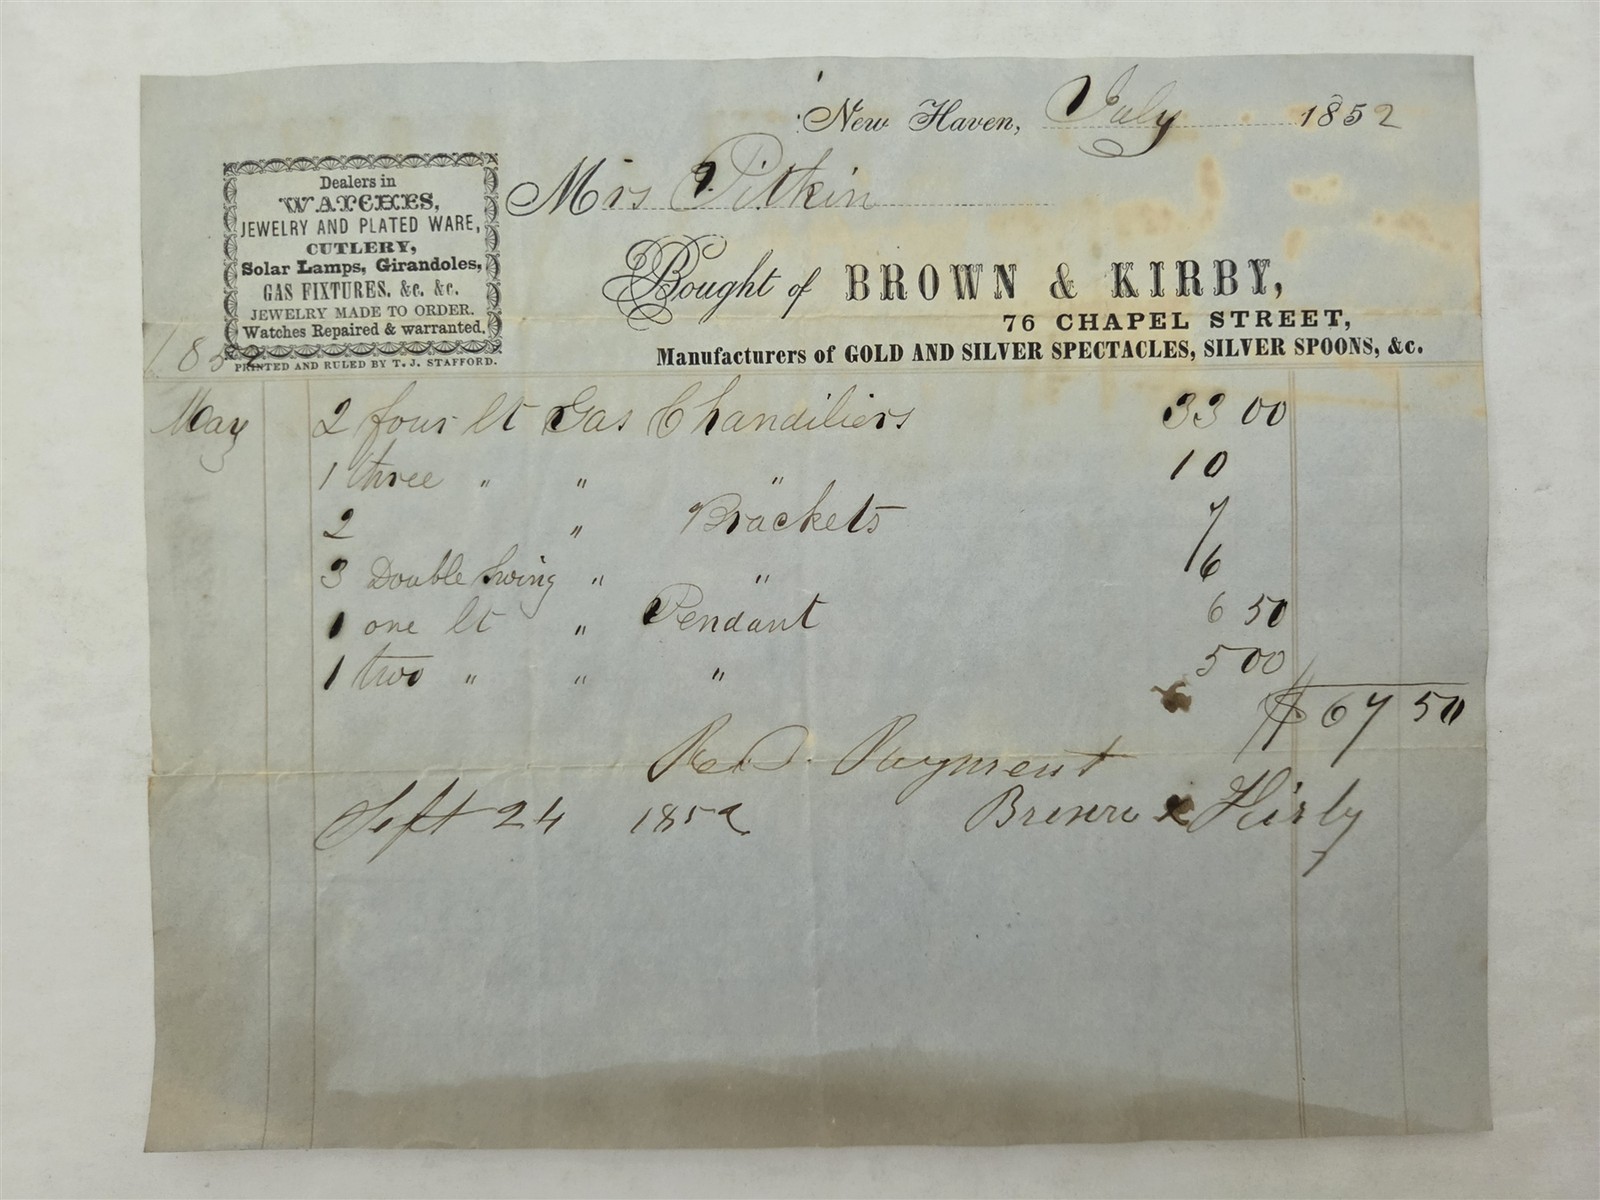 New Haven, July 1852
Mrs Pitkin
Dealers in
WATCHES,
JEWELRY AND PLATED WARE,
CUTLERY,
Solar Lamps, Girandoles,
GAS FIXTURES. &c. &c.
JEWELRY MADE TO ORDER.
Watches Repaired & warranted.
PRINTED AND RULED BY T. J. STAFFORD.
Bought of BROWN & KIRBY,
76 CHAPEL STREET,
Manufacturers of GOLD AND SILVER SPECTACLES, SILVER SPOONS, &c.
1852
May 2 four lt Gas Chandiliers 33 00
1 three " " " 10
2 " Brackets 7
3 Double Swing " " 6
1 one lt " Pendant 6 50
1 two " " " 5 00
$ 67 50
Recd. Payment
Sept 24 1852 Brown & Kirby